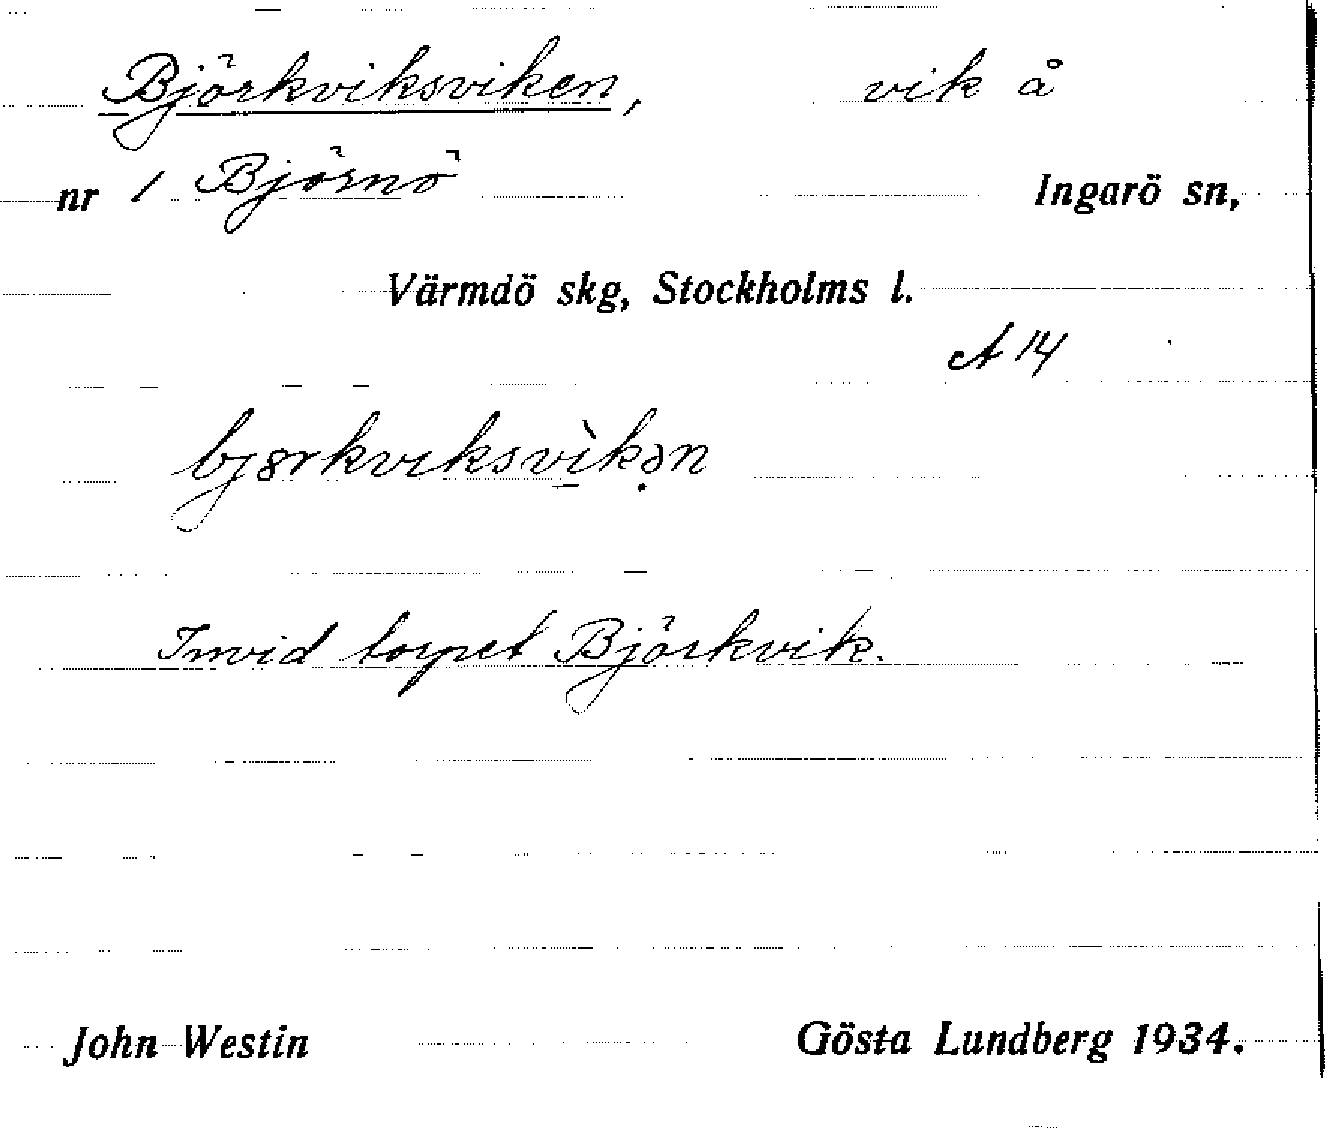 Björkviksviken, vik å
nr 1 Björnö Ingarö sn,
Värmdö skg, Stockholms l.
A 14
bjørkviksvìkən
Invid torpet Björkvik.
John Westin Gösta Lundberg 1934.